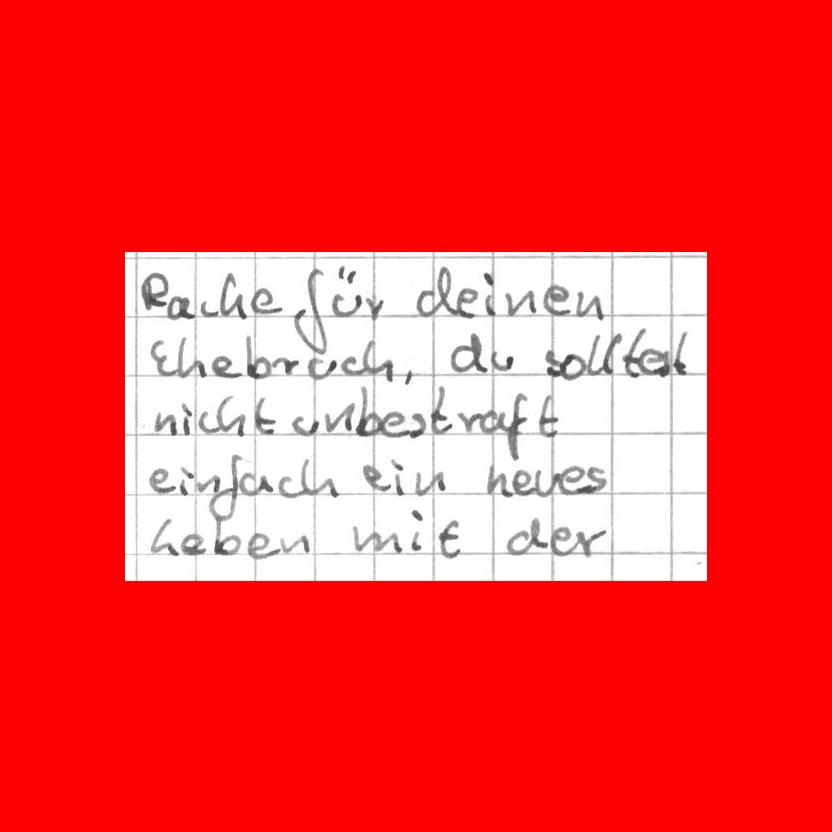 Rache für deinen
Ehebruch, du solltest
nicht unbestraft
einfach ein neues
Leben mit der